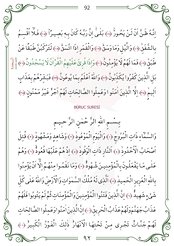 92
إِنَّهُ ظَنَّ أَنْ لَنْ يَحُورَ ﴿١٤﴾ بَلٰى إِنَّ رَبَّهُ كَانَ بِهِ بَصِيرًا ﴿١٥﴾ فَلَا أُقْسِمُ
بِالشَّفَقِ ﴿١٦﴾ وَاللَّيْلِ وَمَا وَسَقَ ﴿١٧﴾ وَالْقَمَرِ إِذَا اتَّسَقَ ﴿١٨﴾ لَتَرْكَبُنَّ طَبَقًا عَنْ
طَبَقٍ ﴿١٩﴾ فَمَا لَهُمْ لَا يُؤْمِنُونَ ﴿٢٠﴾ وَإِذَا قُرِئَ عَلَيْهِمُ الْقُرْاٰنُ لَا يَسْجُدُونَ ﴿٢١﴾
بَلِ الَّذِينَ كَفَرُوا يُكَذِّبُونَ ﴿٢٢﴾ وَاللّٰهُ أَعْلَمُ بِمَا يُوعُونَ ﴿٢٣﴾ فَبَشِّرْهُمْ بِعَذَابٍ
أَلِيمٍ ﴿٢٤﴾ إِلَّا الَّذِينَ اٰمَنُوا وَعَمِلُوا الصَّالِحَاتِ لَهُمْ أَجْرٌ غَيْرُ مَمْنُونٍ ﴿٢٥﴾
BÜRUC SURESİ
بِسْمِ اللّٰهِ الرَّحْمٰنِ الرَّحِيمِ
وَالسَّمَاءِ ذَاتِ الْبُرُوجِ ﴿١﴾ وَالْيَوْمِ الْمَوْعُودِ ﴿٢﴾ وَشَاهِدٍ وَمَشْهُودٍ ﴿٣﴾ قُتِلَ
أَصْحَابُ الْأُخْدُودِ ﴿٤﴾ النَّارِ ذَاتِ الْوَقُودِ ﴿٥﴾ إِذْ هُمْ عَلَيْهَا قُعُودٌ ﴿٦﴾ وَهُمْ
عَلٰى مَا يَفْعَلُونَ بِالْمُؤْمِنِينَ شُهُودٌ ﴿٧﴾ وَمَا نَقَمُوا مِنْهُمْ إِلَّا أَنْ يُؤْمِنُوا
بِاللّٰهِ الْعَزِيزِ الْحَمِيدِ ﴿٨﴾ الَّذِي لَهُ مُلْكُ السَّمٰوَاتِ وَالْأَرْضِ وَاللّٰهُ عَلٰى كُلِّ
شَيْءٍ شَهِيدٌ ﴿٩﴾ إِنَّ الَّذِينَ فَتَنُوا الْمُؤْمِنِينَ وَالْمُؤْمِنَاتِ ثُمَّ لَمْ يَتُوبُوا فَلَهُمْ
عَذَابُ جَهَنَّمَ وَلَهُمْ عَذَابُ الْحَرِيقِ ﴿١٠﴾ إِنَّ الَّذِينَ اٰمَنُوا وَعَمِلُوا الصَّالِحَاتِ
لَهُمْ جَنَّاتٌ تَجْرِي مِنْ تَحْتِهَا الْأَنْهَارُ ذٰلِكَ الْفَوْزُ الْكَبِيرُ ﴿١١﴾
٩٢